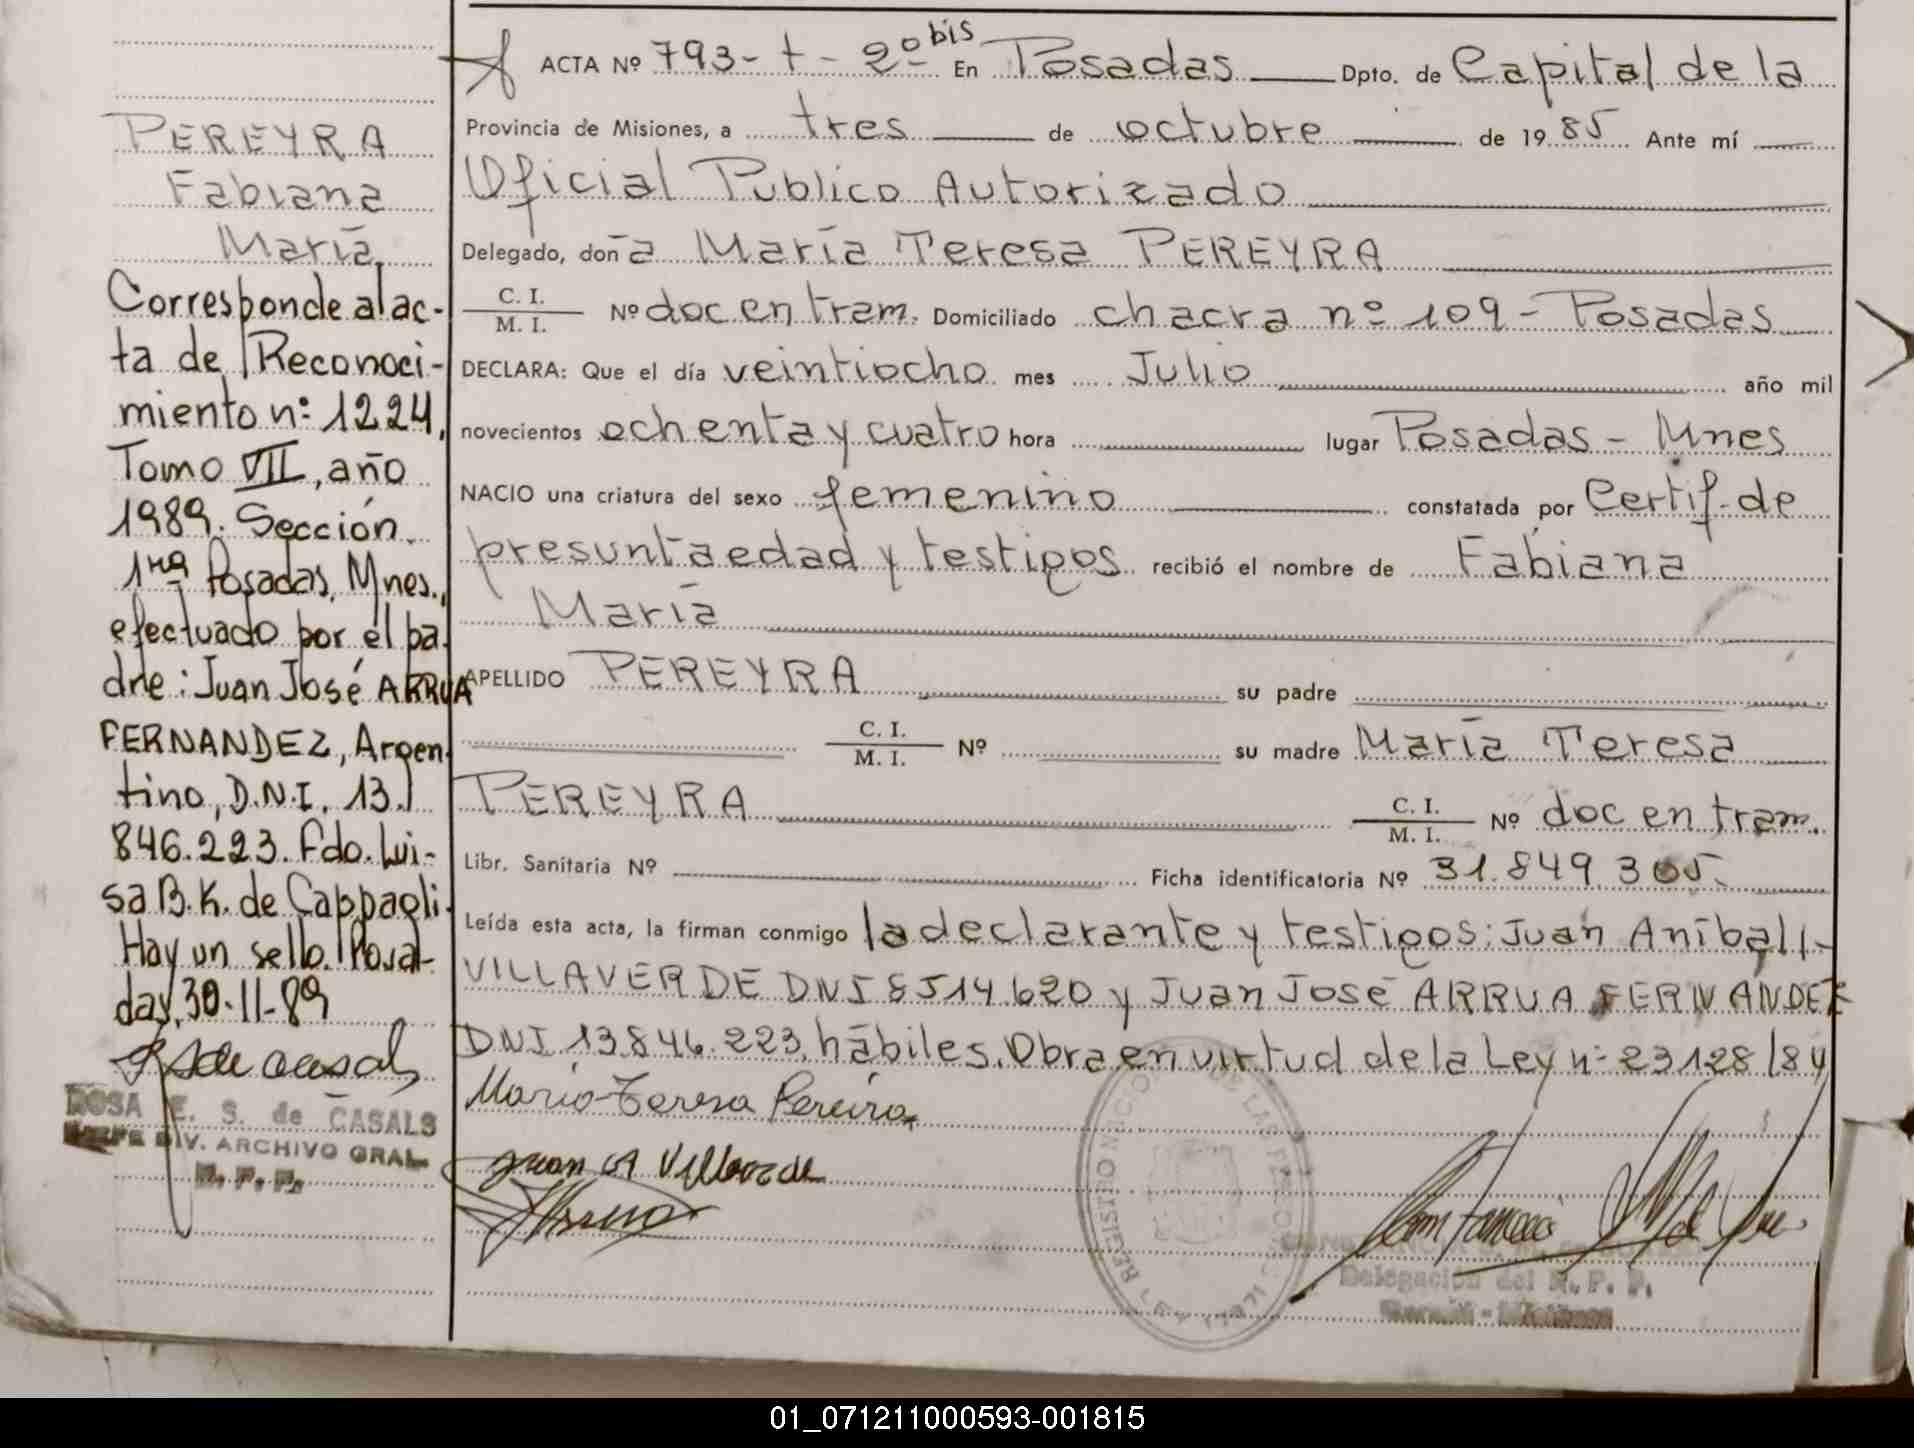 PEREYRA
Fabiana
María
Corresponde al ac-
ta de Reconoci-
miento nº 1224,
Tomo VII, año
1989. Sección
1ra Posadas, Mnes.,
efectuado por el pa-
dre: Juan José ARRUA
FERNANDEZ, Argen-
tino, D.N.I. 13.
846.223. Fdo. Lui-
sa B. K. de Cappaoli.
Hay un sello. Posa-
das, 30-11-89
ROSA E. S. de CASALS
DIV. ARCHIVO GRAL.
R. P. P.
ACTA Nº 793-t-2º bis En Posadas Dpto. de Capital de la
Provincia de Misiones, a tres de octubre de 1985 Ante mí
Oficial Publico Autorizado
Delegado, doña María Teresa PEREYRA
C. I.
M. I. Nº doc en tram. Domiciliado chacra nº 109 - Posadas
DECLARA: Que el día veintiocho mes Julio año mil
novecientos ochenta y cuatro hora lugar Posadas - Mnes
NACIO una criatura del sexo femenino constatada por Certif. de
presunta edad y testigos recibió el nombre de Fabiana
María
APELLIDO PEREYRA su padre
C. I.
M. I. Nº su madre María Teresa
PEREYRA C. I.
M. I. Nº doc en tram.
Libr. Sanitaria Nº Ficha identificatoria Nº 31.849.305
Leída esta acta, la firman conmigo la declarante y testigos: Juan Aníbal
VILLAVERDE DNI 8514620 y Juan José ARRUA FERNANDEZ
DNI 13.846.223, hábiles. Obra en virtud de la Ley nº 23128/84
María Teresa Pereira
Juan A Villaverde
REGISTRO DE LAS PERSONAS
Delegación del R. P. P.
01_071211000593-001815